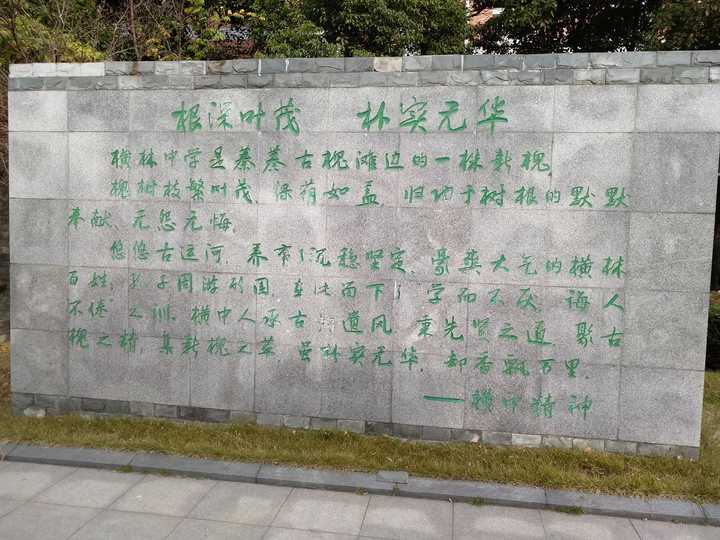 根深叶茂 朴实无华
横林中学是綦綦古槐滩边的一株新槐,
槐树枝繁叶茂、绿荫如盖,归功于树根的默默
奉献、无怨无悔。
悠悠古运河,养育了沉稳坚定、豪爽大气的横林
百姓;孔子周游列国,在此留下了"学而不厌,诲人
不倦"之训。横中人承古 道风,秉先贤之道,聚古
槐之精,集新槐之英,虽朴实无华,却香飘万里。
——横中精神